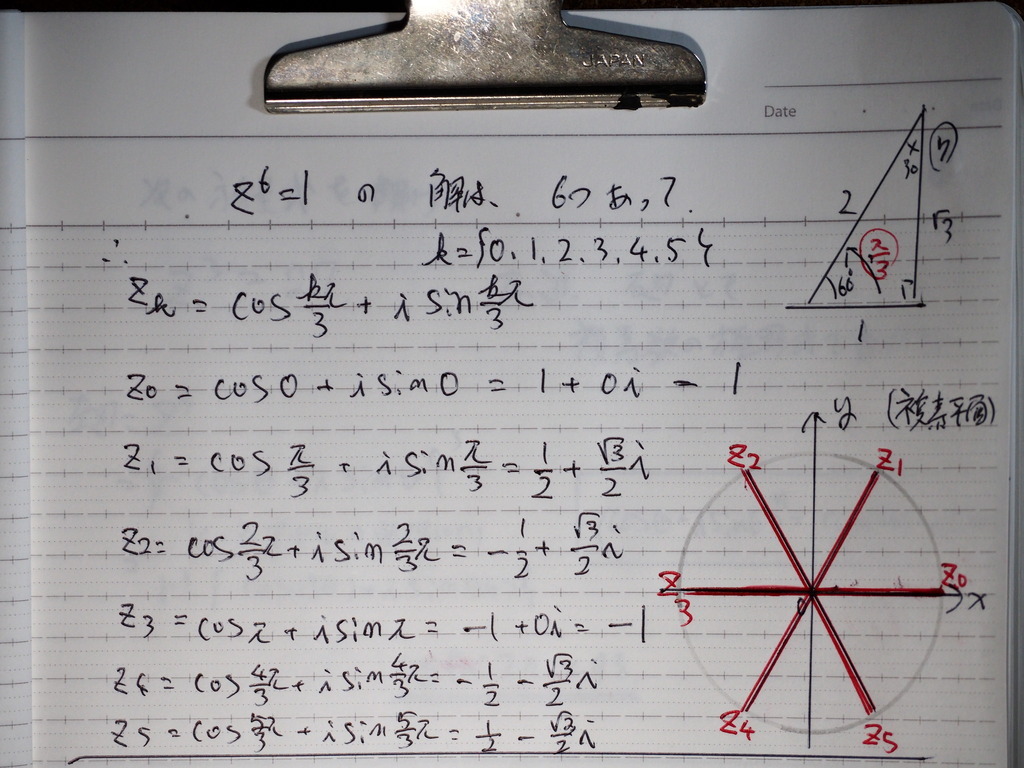 JAPAN
Date
z⁶=1 の 解は、 6つあって.
∴ k={0.1.2.3.4.5}
Zk = cos kπ/3 + i sin kπ/3
Z0 = cos0 + i sin0 = 1 + 0i = 1
Z1 = cos π/3 + i sin π/3 = 1/2 + √3/2 i
Z2 = cos 2/3 π + i sin 2/3 π = -1/2 + √3/2 i
Z3 = cosπ + i sinπ = -1 + 0i = -1
Z4 = cos 4/3 π + i sin 4/3 π = -1/2 - √3/2 i
Z5 = cos 5/3 π + i sin 5/3 π = 1/2 - √3/2 i
30
2
√3
60°
π/3
1
y (複素平面)
Z2
Z1
Z3
Z0
x
0
Z4
Z5